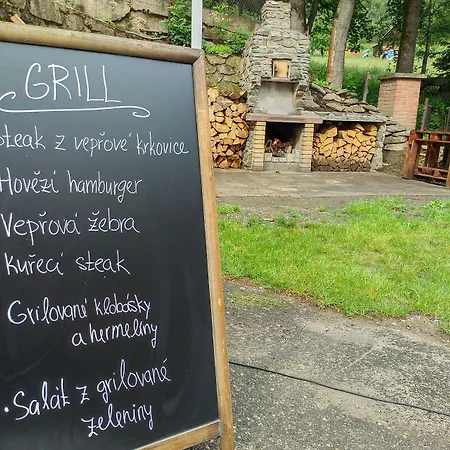 GRILL
Steak z vepřové krkovice
Hovězí hamburger
Vepřová žebra
Kuřecí steak
Grilované klobásky
a hermelíny
• Salát z grilované
zeleniny